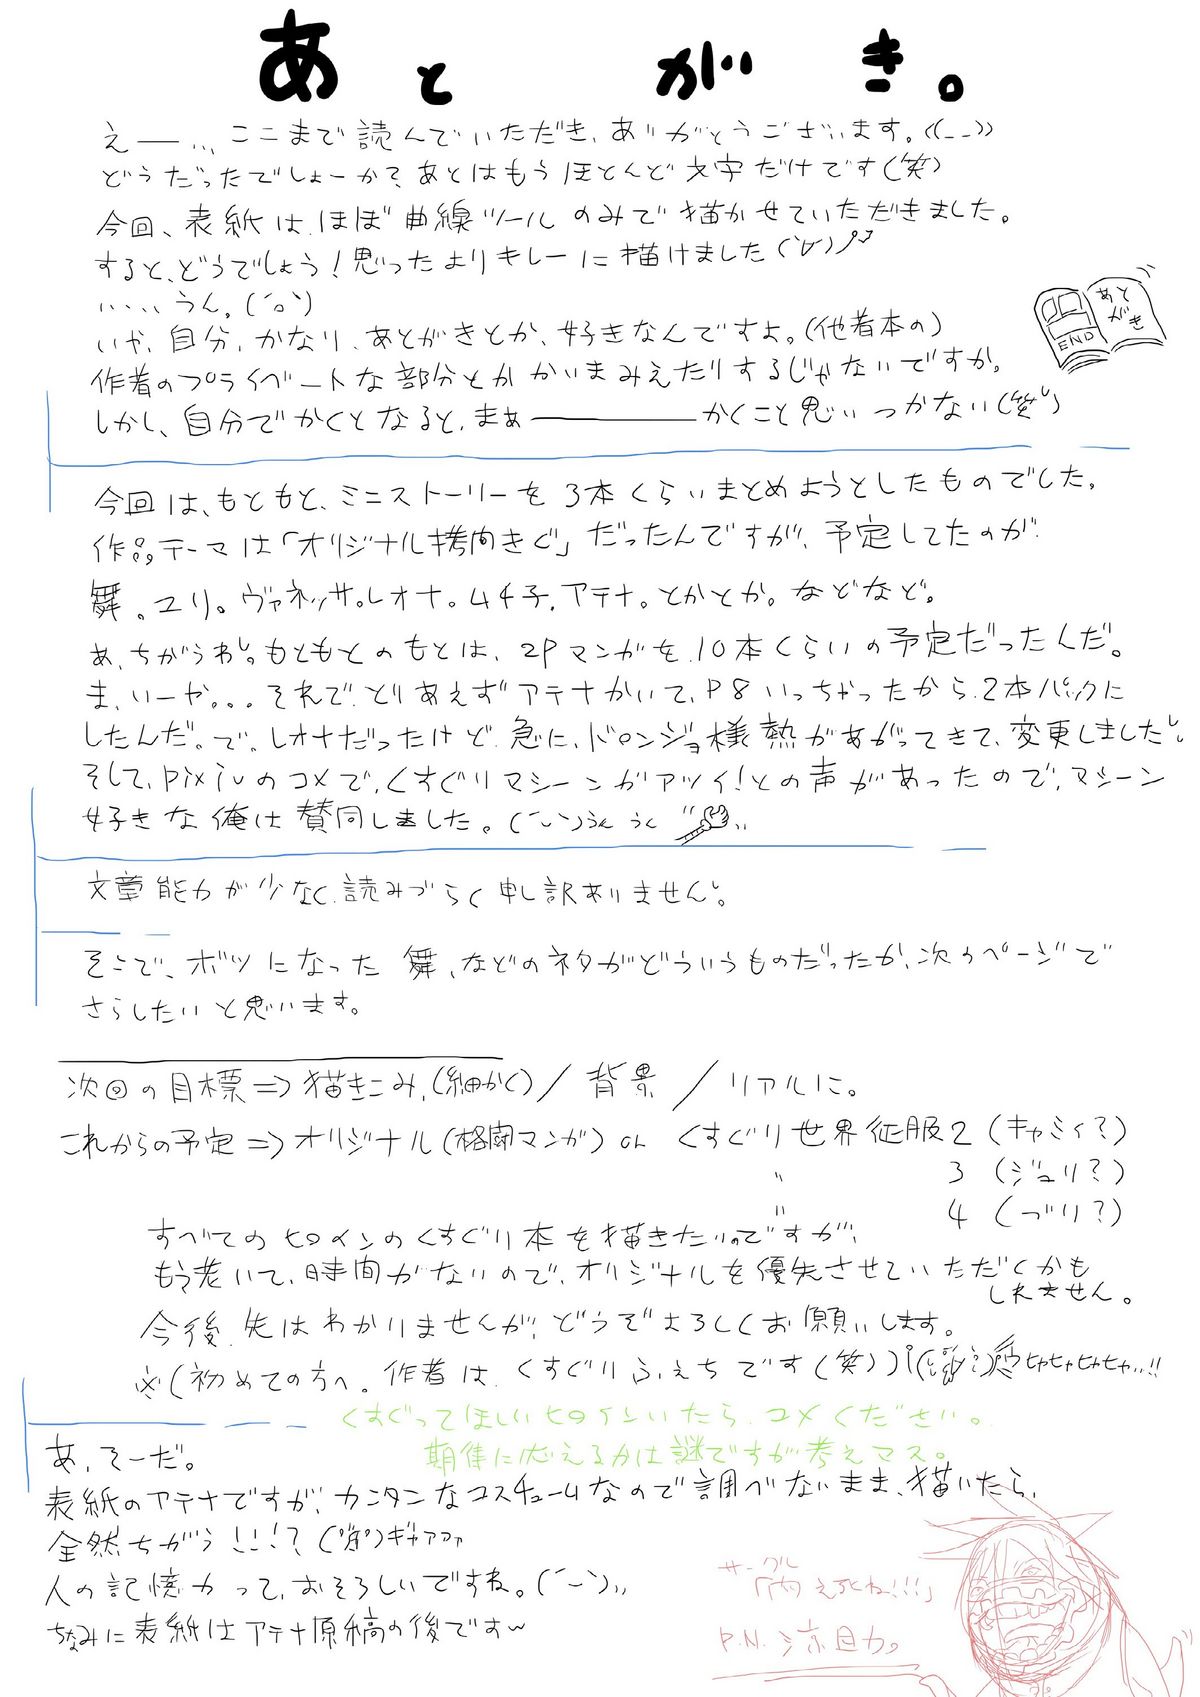 あとがき。
えー... ここまで読んでいただき、ありがとうございます。((_ _))
どうだったでしょーか?あとはもうほとんど文字だけです(笑)
今回、表紙は、ほぼ曲線ツールのみで描かせていただきました。
すると、どうでしょう!思ったよりキレーに描けました(´∀`)
、、、、うん。(´o`)
いや、自分、かなり、あとがきとか、好きなんですよ。(他者本の)
作者のプライベートな部分とかかいまみえたりするじゃないですか。
しかし、自分でかくとなると、まぁ―――――かくこと思いつかない(笑)
あとがき
END
今回は、もともと、ミニストーリーを3本くらいまとめようとしたものでした。
作品テーマは「オリジナル拷問きぐ」だったんですが、予定してたのが
舞。ユリ。ヴァネッサ。レオナ。ムチ子。アテナ。とかとか。などなど。
あ、ちがうわ。もともとのもとは、2Pマンガを、10本くらいの予定だったんだ。
ま、いーや。。。それで、とりあえずアテナかいて、P8いっちゃったから、2本パックに
したんだ。で。レオナだったけど、急に、ドロンジョ様熱があがってきて、変更しました。
そして、pixivのコメで、くすぐりマシーンがアツイ!との声があったので、マシーン
好きな俺は賛同しました。(´ー`)うん うん
文章能力が少なく、読みづらく申し訳ありません。
そこで、ボツになった舞、などのネタがどういうものだったか、次のページで
さらしたいと思います。
次回の目標⇒描きこみ、(細かく)/背景/リアルに。
これからの予定⇒オリジナル(格闘マンガ) or くすぐり世界征服2(キャミィ?)
〃 3(ジュリ?)
〃 4(づり?)
すべてのヒロインのくすぐり本を描きたいのですが、
もう老いて、時間がないので、オリジナルを優先させていただくかも
しれません。
今後、先はわかりませんが、どうぞよろしくお願いします。
※(初めての方へ。作者は、くすぐりふぇちです(笑))ヒャヒャヒャヒャ...!!
くすぐってほしいヒロインいたら、コメください。
期待に応えるかは謎ですが考えマス。
あ、そーだ。
表紙のアテナですが、カンタンなコスチュームなので調べないまま、描いたら、
全然ちがう!!!?ギャアァァ
人の記憶力って、おそろしいですね。(´ー`)、、
ちなみに表紙はアテナ原稿の後です〜
サークル
P.N.涼目力。